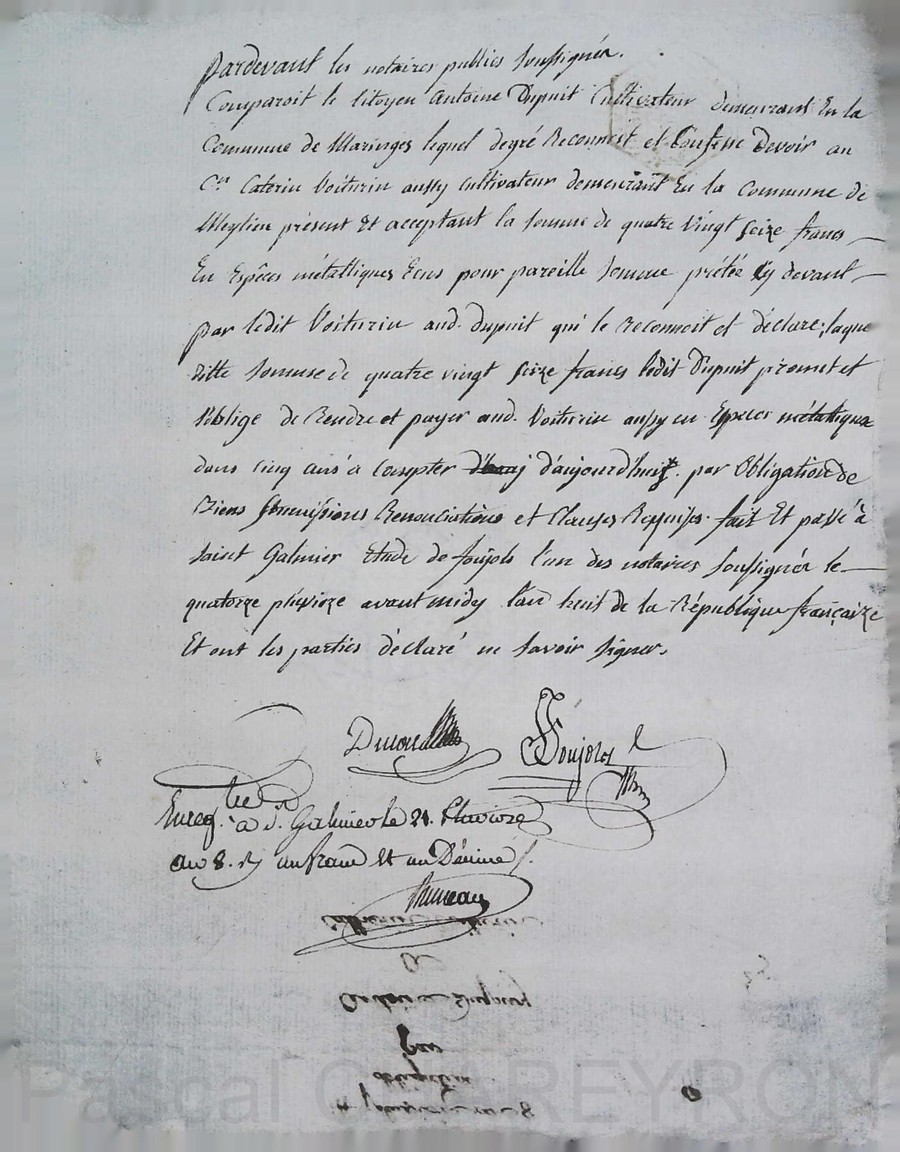 pardevant les notaires publics soussignés.
Comparoit le Citoyen Antoine Dupuit Cultivateur demeurant En la
Commune de Maringes lequel degré Reconnoit et Confesse Devoir au
Cen. Caterin Voiturin aussy Cultivateur demeurant En la Commune de
présent Et acceptant la somme de quatre vingt seize francs
En Espèces métalliques Eeus pour pareille somme prétée Cy devant
par ledit Voiturin aud. Dupuit qui le reconnoit et déclare; laque
ditte somme de quatre vingt seize francs ledit Dupuit promet et
soblige de Rendre et payer aud. Voiturin aussy en Espèces métallique
dans Cinq ans à Compter d'aujourd'huit. par Obligation de
Biens soumissions Renonciations et Clauses Requises. fait Et passé à
saint Galmier Etude de foujols l'un des notaires soussignés le
quatorze pluvioze avant midy l'an huit de la République françaize
Et ont les parties déclaré ne savoir signer.
foujols
Enreg. à St. Galmier le 21. Pluvioze
an 8. un franc et un Décime
Pascal REYRON